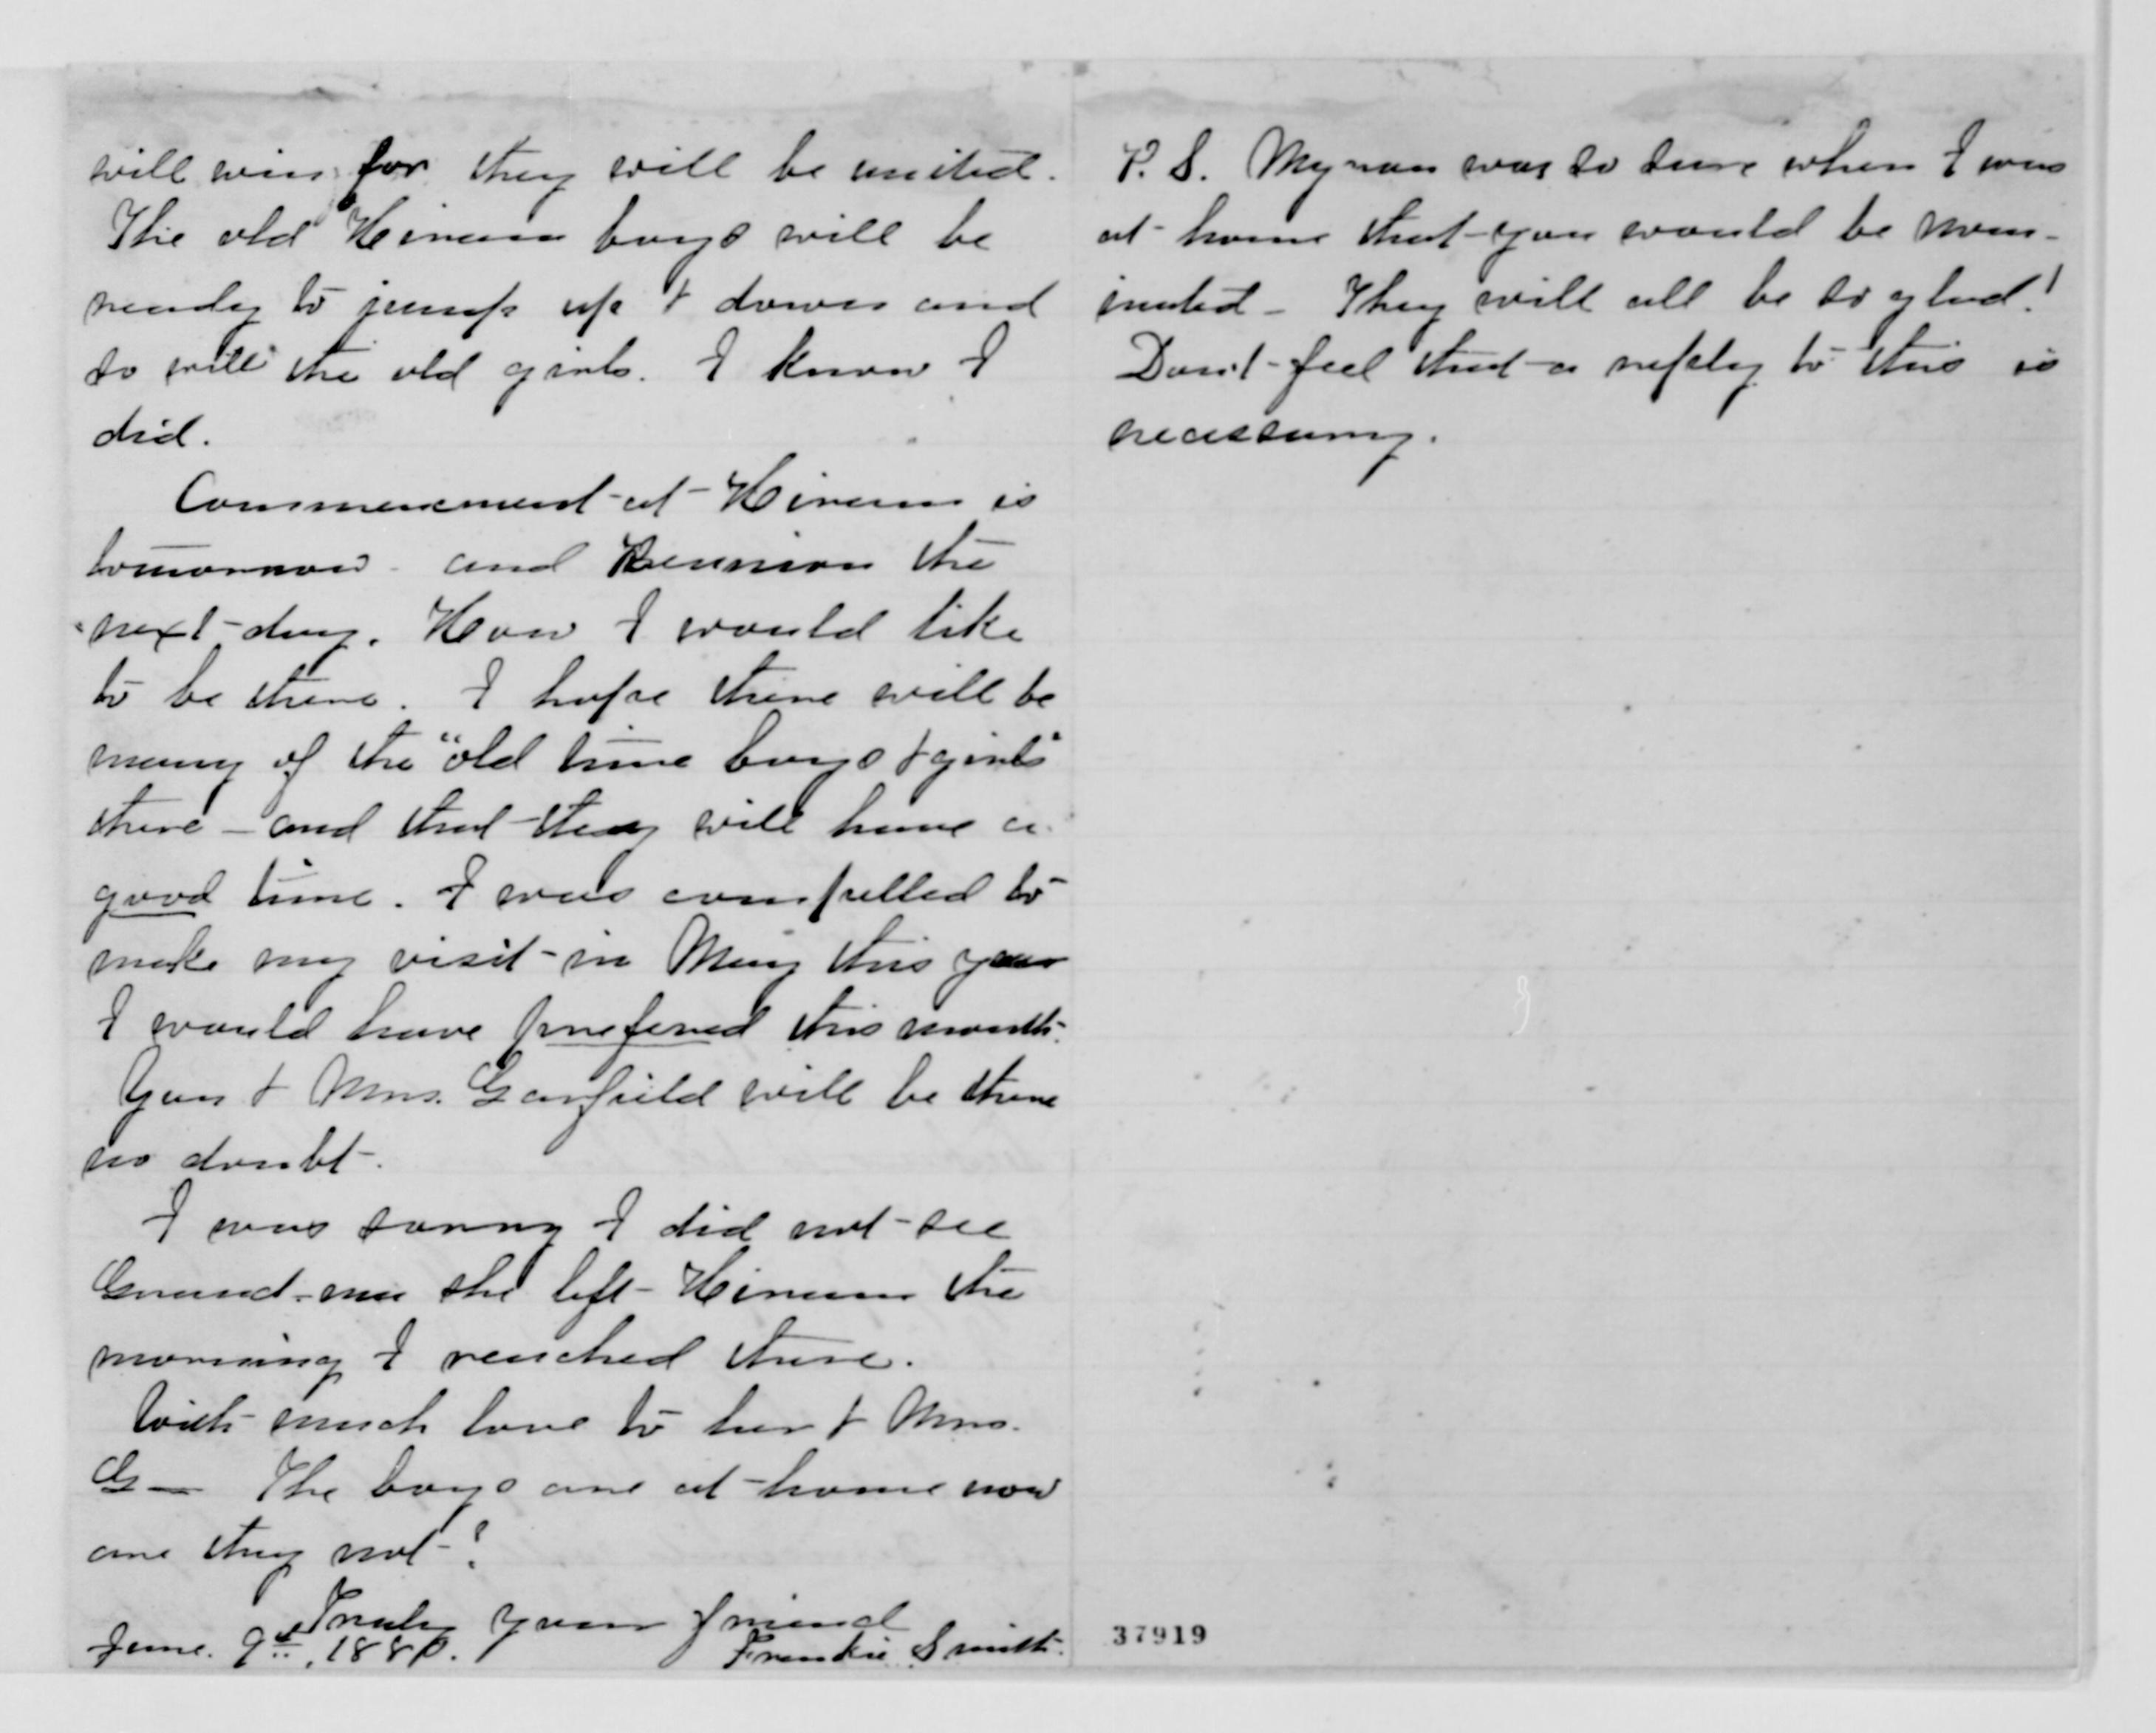 will win for they will be united.
The old Hiram boys will be
ready to jump up & down and
so will the old girls. I know I
did.
Commencement at Hiram is
tomorrow - and Reunion the
next day. How I would like
to be there. I hope there will be
many of the "old time boys & girls"
there - and that they will have a
good time. I was compelled to
make my visit in May this year
I would have prefered this month.
You & Mrs. Garfield will be there
no doubt.
I was sorry I did not see
Grand-ma she left Hiram the
morning I reached there.
With much love to her & Mrs.
G— The boys are at home now
are they not?
Truly your friend
June. 9th, 1880. Frankie Smith.
P.S. Myron was so sure when I was
at home that you would be nom-
inated - They will all be so glad!
Don't feel that a reply to this is
necessary.
37919